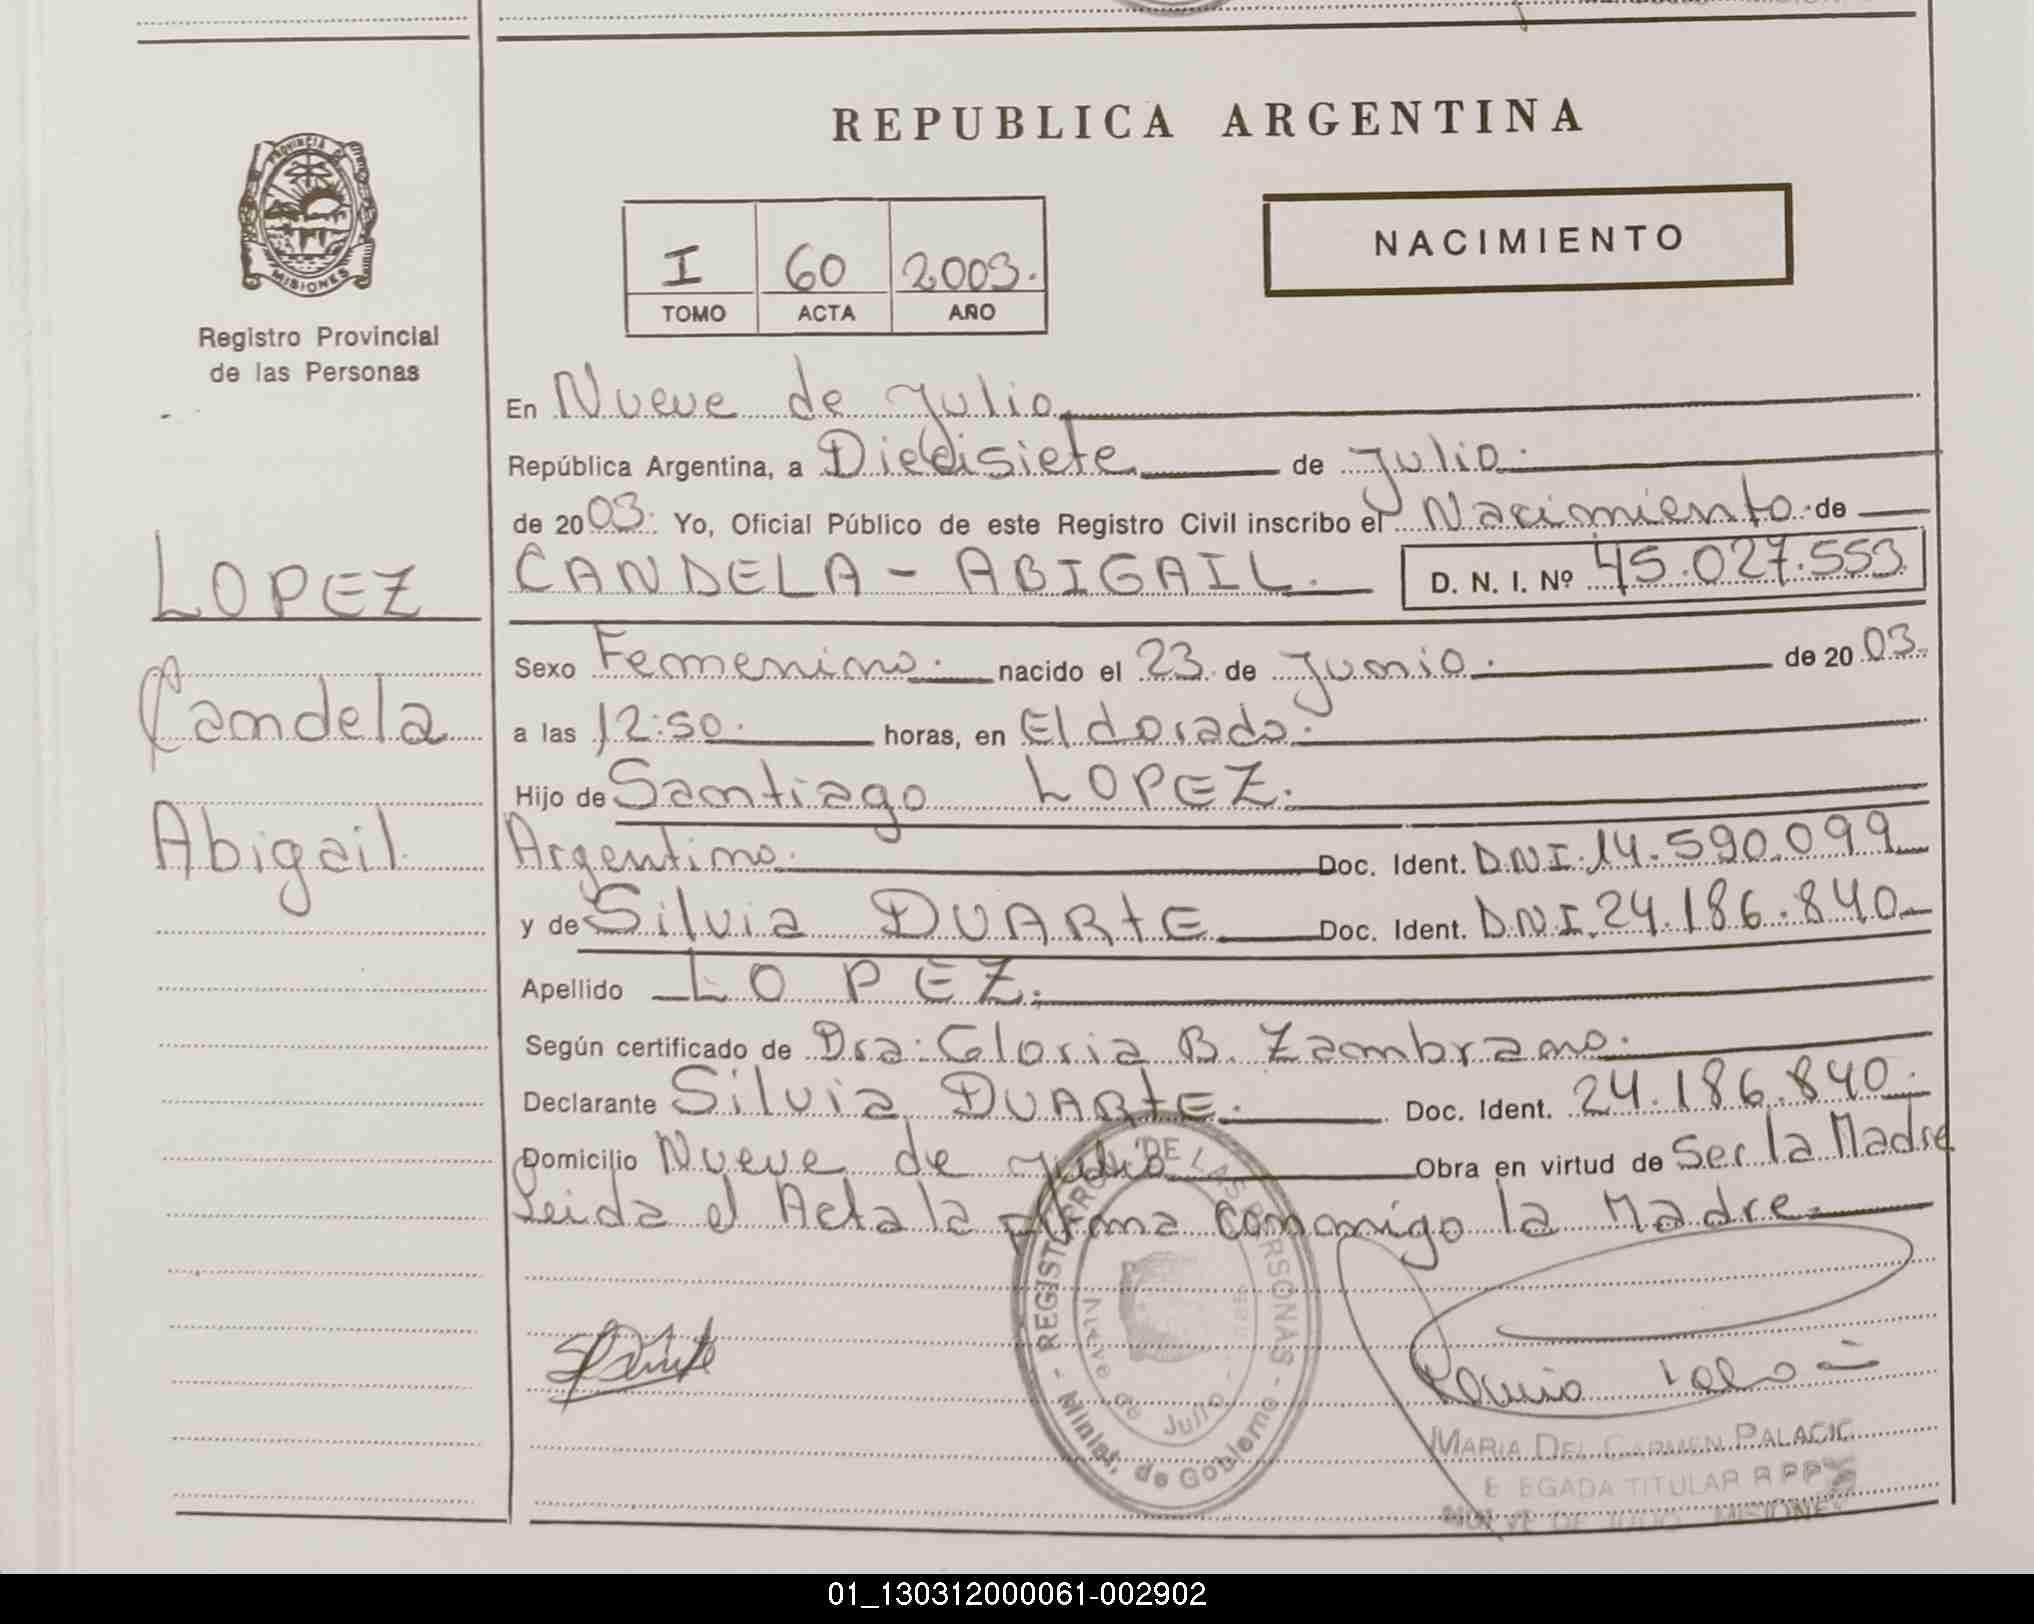 REPUBLICA ARGENTINA
PROVINCIA DE
MISIONES
Registro Provincial
de las Personas
I 60 2003.
TOMO ACTA AÑO
NACIMIENTO
En Nueve de Julio
República Argentina, a Diecisiete de Julio.
de 2003. Yo, Oficial Público de este Registro Civil inscribo el Nacimiento de
CANDELA - ABIGAIL. D. N. I. Nº 45.027.553
LOPEZ
Candela
Abigail
Sexo Femenino. nacido el 23 de Junio. de 2003.
a las 12:50. horas, en Eldorado.
Hijo de Santiago LOPEZ.
Argentino. Doc. Ident. DNI.14.590.099
y de Silvia DUARTE Doc. Ident. DNI.24.186.840
Apellido LOPEZ.
Según certificado de Dra. Gloria B. Zambrano.
Declarante Silvia DUARTE. Doc. Ident. 24.186.840.
Domicilio Nueve de Julio Obra en virtud de Ser la Madre
Leida el Acta la firma conmigo la Madre.
DE LAS PERSONAS
Nueve de Julio
Minist. de Gobierno
MARIA DEL CARMEN PALACIO
TITULAR
MISIONES
01_130312000061-002902